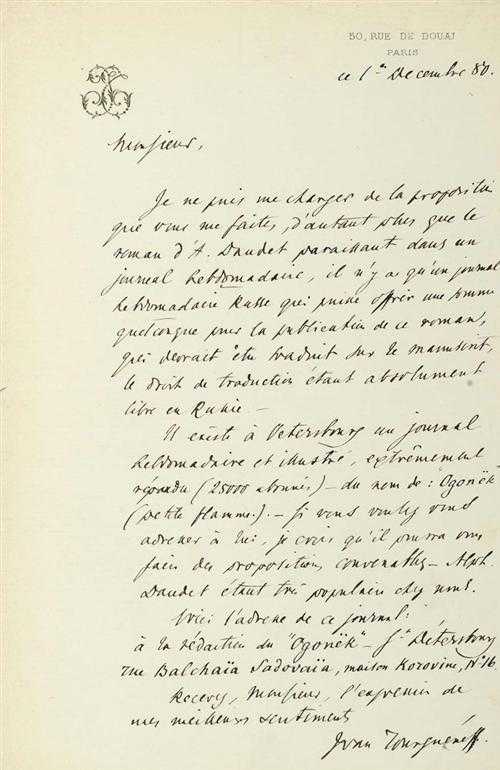 50, RUE DE DOUAI
PARIS
ce 1er Decembre 80.
Monsieur,
Je ne puis me charger de la proposition
que vous me faites, d'autant plus que le
roman d'A. Daudet paraissant dans un
journal hebdomadaire, il n'y a qu'un journal
hebdomadaire Russe qui puisse offrir une somme
quelconque pour la publication de ce roman,
qui devrait être traduit sur le manuscrit,
le droit de traduction étant absolument
libre en Russie —
Il existe à Pétersbourg un journal
hebdomadaire et illustré, extrêmement
répandu (25000 abonnés) — du nom de: Ogoniok
(petite flamme). — Si vous voulez vous
adresser à lui, je crois qu'il pourra vous
faire des propositions convenables — Alph.
Daudet étant très populaire chez nous.
Voici l'adresse de ce journal:
à la rédaction du "Ogoniok" — St Pétersbourg
rue Balchaïa Sadovaïa, maison Korovine, No 16.
Recevez, Monsieur, l'expression de
mes meilleurs sentiments
Ivan Tourguéneff.